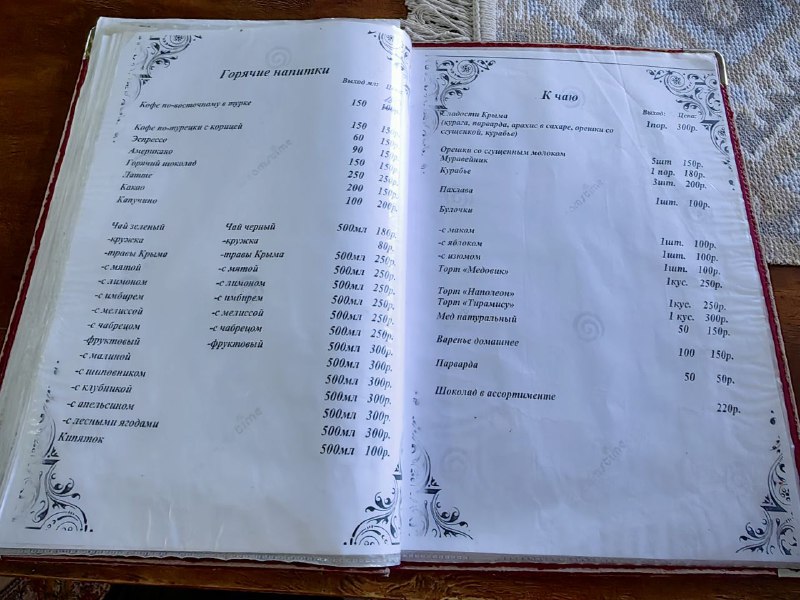 Горячие напитки
Выход мл:
Кофе по-восточному в турке 150
Кофе по-турецки с корицей 150 150р.
Эспрессо 60 150р.
Американо 90 150р.
Горячий шоколад 150 150р.
Латте 250 250р.
Какао 200 150р.
Капучино 100 200р.
Чай зеленый Чай черный 500мл 180р.
-кружка -кружка 80р.
-травы Крыма -травы Крыма 500мл 250р.
-с мятой -с мятой 500мл 250р.
-с лимоном -с лимоном 500мл 250р.
-с имбирем -с имбирем 500мл 250р.
-с мелиссой -с мелиссой 500мл 250р.
-с чабрецом -с чабрецом 500мл 250р.
-фруктовый -фруктовый 500мл 300р.
-с малиной 500мл 300р.
-с шиповником 500мл 300р.
-с клубникой 500мл 300р.
-с апельсином 500мл 300р.
-с лесными ягодами 500мл 300р.
Кипяток 500мл 100р.
К чаю
Выход: Цена:
Сладости Крыма 1пор. 300р.
(курага, парварда, арахис в сахаре, орешки со
сгущенкой, курабье)
Орешки со сгущенным молоком 5шт 150р.
Муравейник 1 пор. 180р.
Курабье 3шт. 200р.
Пахлава 1шт. 100р.
Булочки
-с маком 1шт. 100р.
-с яблоком 1шт. 100р.
-с изюмом 1шт. 100р.
Торт «Медовик» 1кус. 250р.
Торт «Наполеон» 1кус. 250р.
Торт «Тирамису» 1 кус. 300р.
Мед натуральный 50 150р.
Варенье домашнее 100 150р.
Парварда 50 50р.
Шоколад в ассортименте 220р.